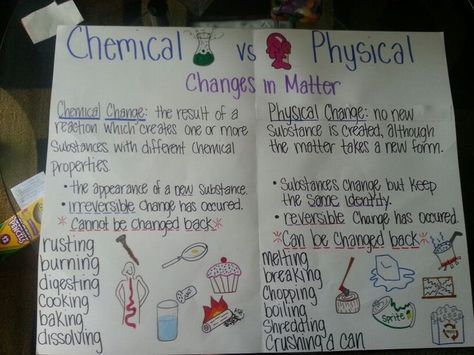 Chemical vs Physical
Changes in Matter
Chemical Change: the result of a
reaction which creates one or more
Substances with different Chemical
properties.
• the appearance of a new Substance.
• irreversible Change has occured.
*Cannot be changed back*
rusting
burning
digesting
Cooking
baking
dissolving
Physical Change: no new
Substance is created, although
the matter takes a new form.
• Substances change but keep
the same identity.
• reversible Change has occured.
*Can be changed back*
melting
breaking
Chopping
boiling
Shredding
Crushing a can
Sprite